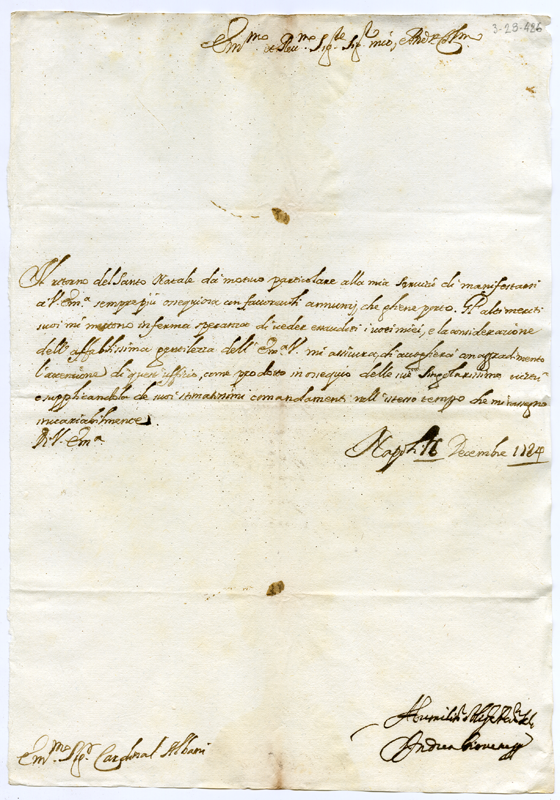 3-29-426
Em.mo e Rev.mo Sig.re Sig.r mio, e Pad.e Col.mo
Il ritorno del Santo Natale dà motivo particolare alla mia servitù di manifestarsi
a V. Em.a sempre più ossequiosa con favorevoli annunzj, che gliene porto. Gl'alti meriti
suoi mi mettono in ferma speranza di veder esauditi i voti miei, e la considerazione
dell'affabilissima gentilezza dell'Em.a V. mi assicura, di accoglierà con aggradimento
l'attenzione di quest'uffizio, come prodotto in ossequio delle sue singolarissime
e supplicandola de' suoi stimatissimi comandamenti nell'istesso tempo che mi rassegno
invariabilmente
Di V. Em.a
Napoli Decembre
Andrea
Em.mo Sig.r Cardinal Albani